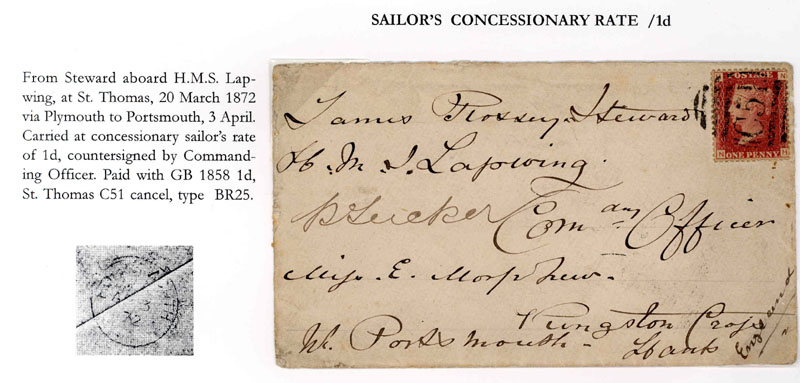 SAILOR'S CONCESSIONARY RATE /1d
From Steward aboard H.M.S. Lap-
wing, at St. Thomas, 20 March 1872
via Plymouth to Portsmouth, 3 April.
Carried at concessionary sailor's rate
of 1d, countersigned by Command-
ing Officer. Paid with GB 1858 1d,
St. Thomas C51 cancel, type BR25.
POSTAGE
ONE PENNY
C51
James Steward
H.M.S. Lapwing.
Com^dng Officer
Miss. E. Morphew.
Kingston Cross
Nr. Portsmouth. Hants
England